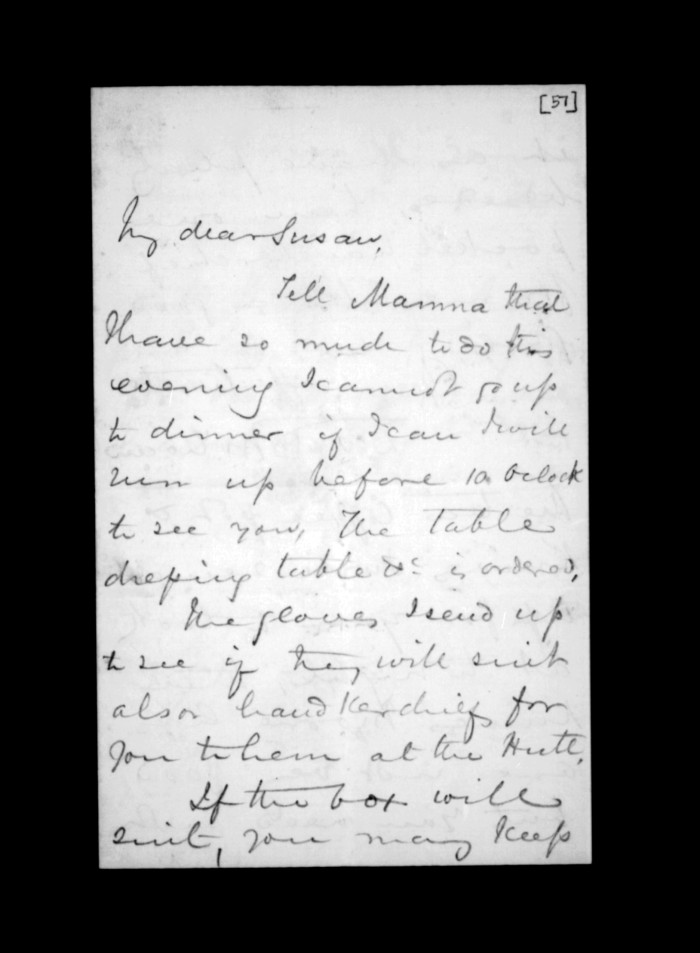 [57]
My dear Susan,
Tell Mamma that
I have so much to do this
evening I cannot go up
to dinner if I can I will
run up before 10 oclock
to see you, The table
dressing table &c is ordered,
The gloves I send up
to see if they will suit
also handkerchiefs for
you to hem at the Hutt,
If the box will
suit, you may keep